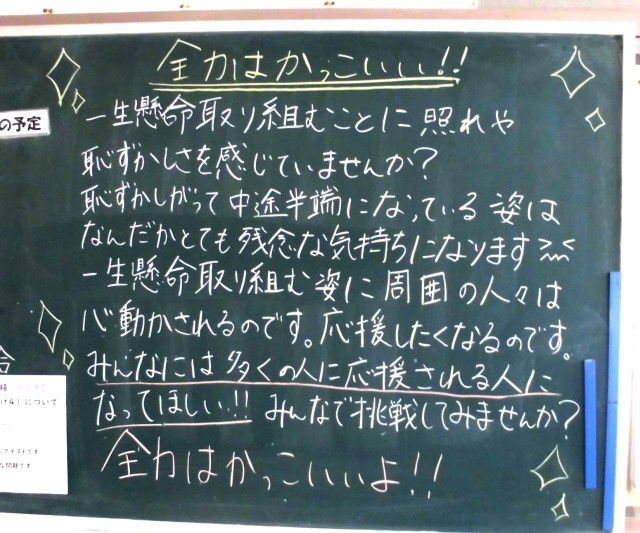 全力はかっこいい!!
一生懸命取り組むことに照れや
恥ずかしさを感じていませんか?
恥ずかしがって中途半端になっている姿は
なんだかとても残念な気持ちになります
一生懸命取り組む姿に周囲の人々は
心動かされるのです。応援したくなるのです。
みんなには多くの人に応援される人に
なってほしい!!みんなで挑戦してみませんか?
全力はかっこいいよ!!
の予定
について
テストです
な問題です